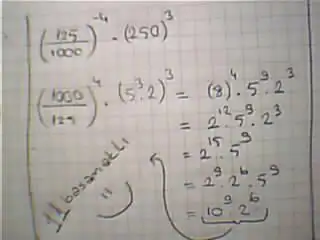 (125/1000)⁻⁴ · (250)³
(1000/125)⁴ · (5³.2)³ = (8)⁴ . 5⁹ . 2³
= 2¹² . 5⁹ . 2³
= 2¹⁵ . 5⁹
= 2⁹ . 2⁶ . 5⁹
= 10⁹ . 2⁶
11 basamaklı